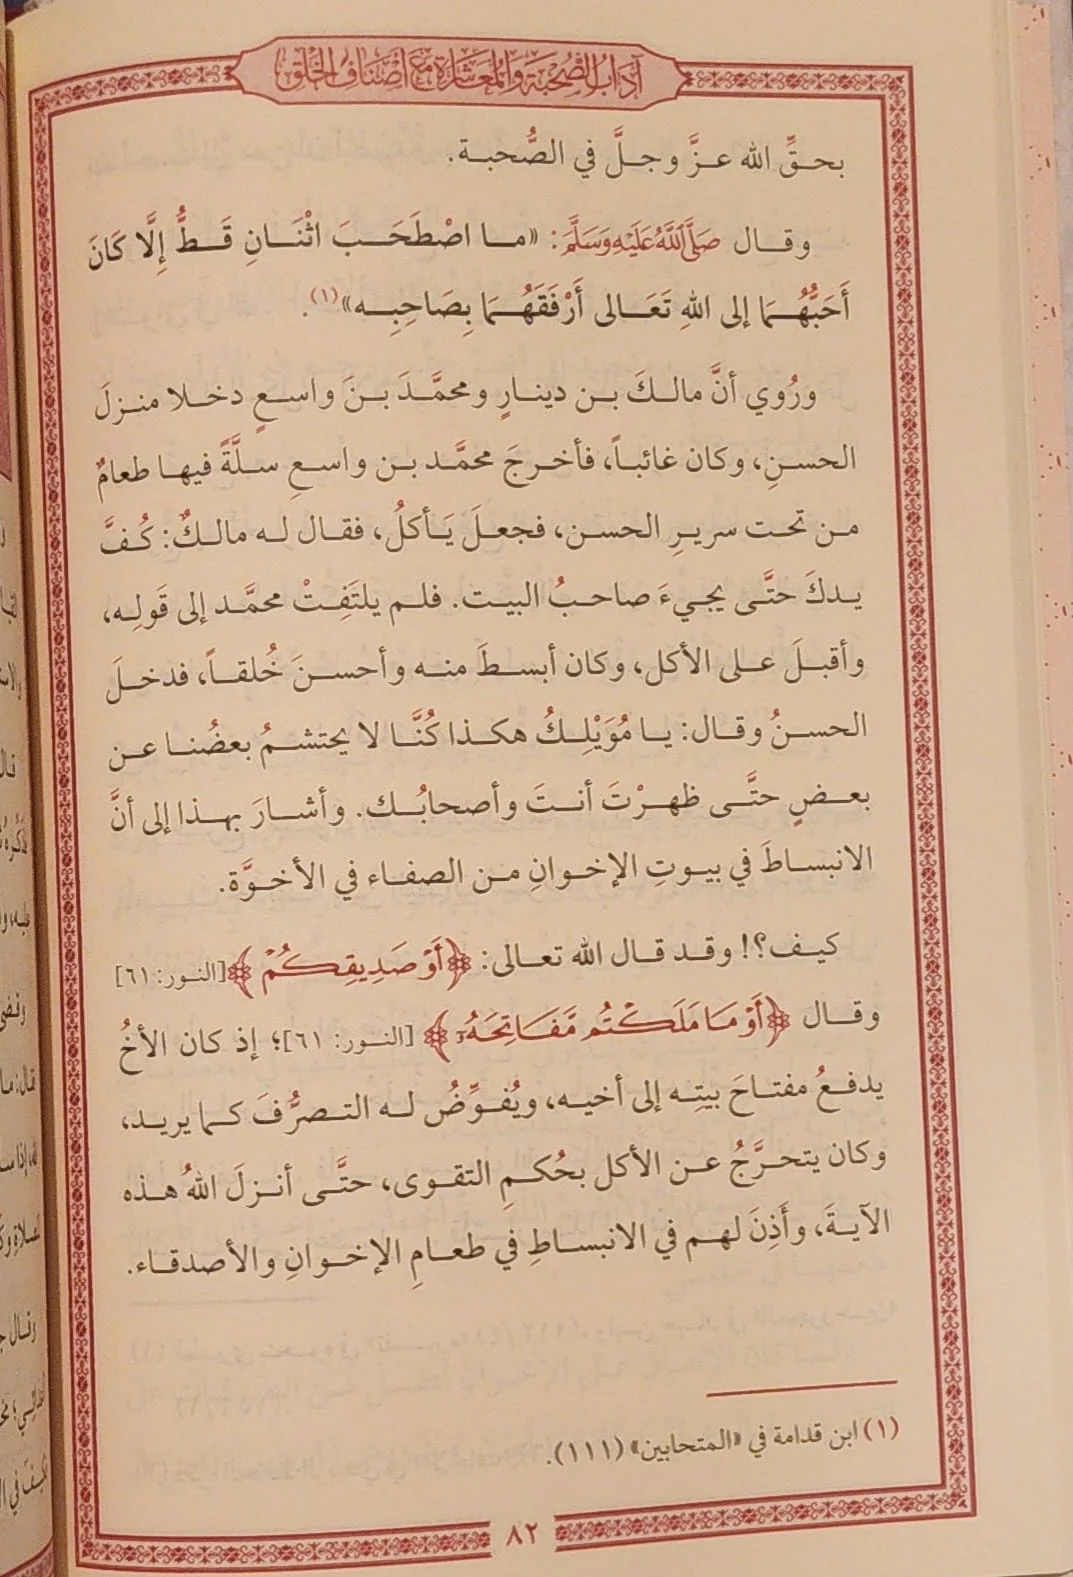 آداب الصحبة والمعاشرة مع أصناف الخلق
بحقِّ الله عزَّ وجلَّ في الصُّحبة.
وقال صَلَّى اللَّهُ عَلَيْهِ وَسَلَّمَ: «ما اصْطَحَبَ اثْنَانِ قَطُّ إِلَّا كَانَ
أَحَبُّهُمَا إلى اللهِ تَعَالى أَرْفَقَهُمَا بِصَاحِبِه»(١).
ورُوي أنَّ مالكَ بن دينارٍ ومحمَّدَ بنَ واسعٍ دخلا منزلَ
الحسنِ، وكان غائباً، فأخرجَ محمَّد بن واسعٍ سلَّةً فيها طعامٌ
من تحت سريرِ الحسن، فجعلَ يَأكلُ، فقال له مالكٌ: كُفَّ
يدكَ حتَّى يجيءَ صاحبُ البيت. فلم يلتَفِتْ محمَّد إلى قَولِه،
وأقبلَ على الأكل، وكان أبسطَ منه وأحسنَ خُلقاً، فدخلَ
الحسنُ وقال: يا مُوَيْلِكُ هكذا كُنَّا لا يحتشمُ بعضُنا عن
بعضٍ حتَّى ظهرْتَ أنتَ وأصحابُك. وأشارَ بهذا إلى أنَّ
الانبساطَ في بيوتِ الإخوانِ من الصفاء في الأخوَّة.
كيف؟! وقد قال الله تعالى: ﴿أَوْ صَدِيقِكُمْ﴾ [النور: ٦١]
وقال ﴿أَوْ مَا مَلَكْتُم مَّفَاتِحَهُۥٓ﴾ [النور: ٦١]؛ إذ كان الأخُ
يدفعُ مفتاحَ بيتِه إلى أخيه، ويُفوِّضُ له التصرُّفَ كما يريد،
وكان يتحرَّجُ عن الأكل بحُكمِ التقوى، حتَّى أنزلَ اللهُ هذه
الآيةَ، وأَذِنَ لهم في الانبساطِ في طعامِ الإخوانِ والأصدقاء.
(١) ابن قدامة في «المتحابين» (١١١).
٨٢